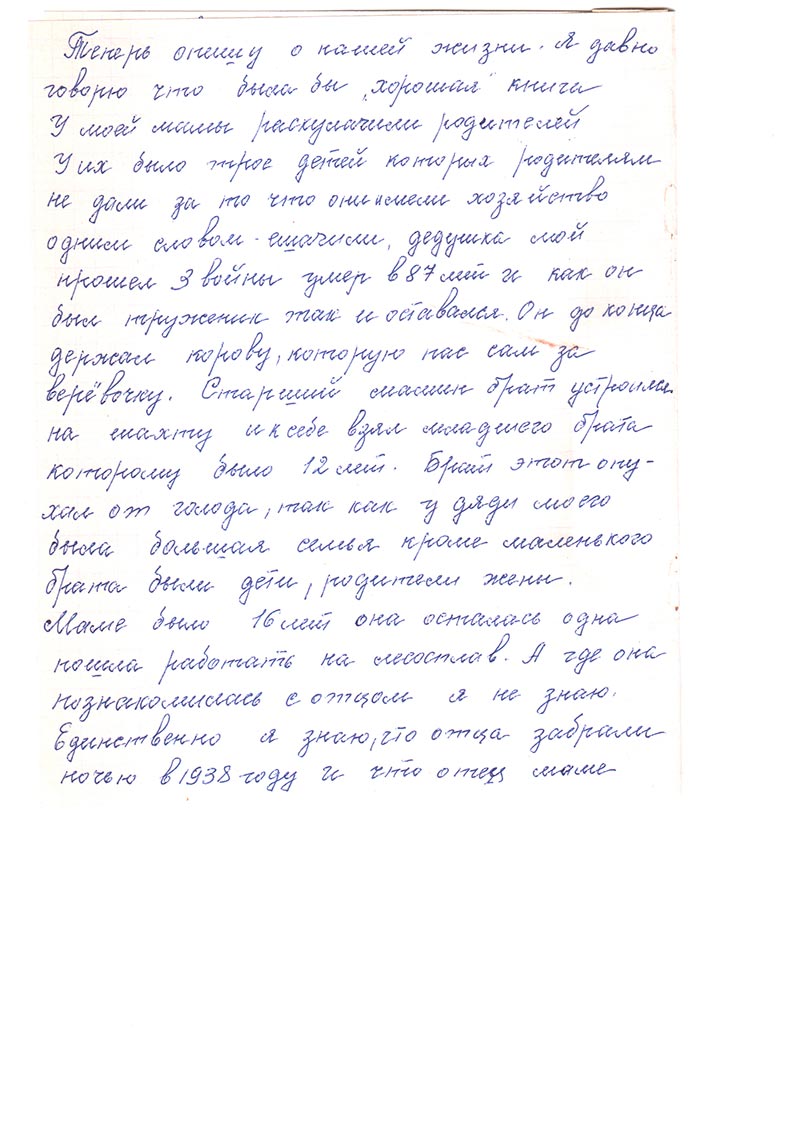 Теперь опишу о нашей жизни. Я давно
говорю что была бы „хорошая" книга
У моей мамы раскулачили родителей
У их было трое детей которых родителям
не дали за то что они имели хозяйство
одним словом - ешачили, дедушка мой
прошел 3 войны умер в 87 лет и как он
был труженик так и оставался. Он до конца
держал корову, которую пас сам за
верёвочку. Старший мамин брат устроился
на шахту и к себе взял младшего брата
которому было 12 лет. Брат этот опу-
хал от голода, так как у дяди моего
была большая семья кроме маленького
брата были дети, родители жены.
Маме было 16 лет она осталась одна
пошла работать на лесосплав. А где она
познакомилась с отцом я не знаю.
Единственно я знаю, что отца забрали
ночью в 1938 году и что отец маме